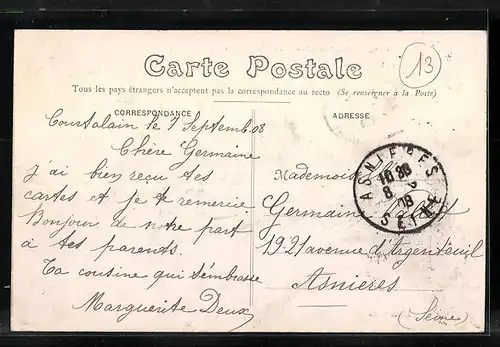 13
Carte Postale
Tous les pays étrangers n'acceptent pas la correspondance au recto (Se renseigner à la Poste)
CORRESPONDANCE
Courtalain le 7 Septemb. 08
Chère Germaine
J'ai bien reçu tes
cartes et je te remercie
Bonjour de notre part
à tes parents.
Ta cousine qui s'embrasse
Marguerite Deux
ADRESSE
Mademoiselle
Germaine
19-21 avenue d'Argenteuil
Asnières
(Seine)
ASNIERES
8
08
SEINE